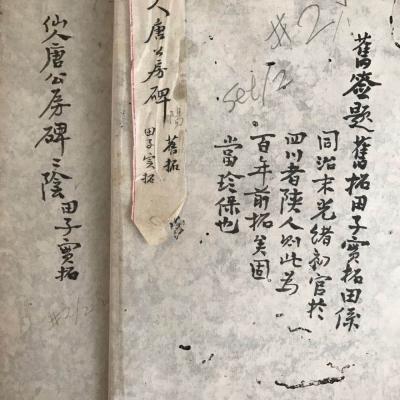 #2/
set/2
舊簽題舊拓田子實拓田係
同治末光緒初官於
四川者陝人則此為
百年前拓矣固
當珍保也
人唐公房碑
陽
舊拓
田子實拓
仙人唐公房碑〻陰田子實拓